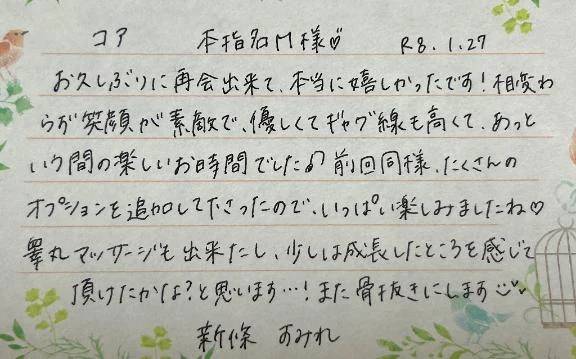 コア 本指名M様♡ R8.1.27
お久しぶりに再会出来て、本当に嬉しかったです!相変わ
らず笑顔が素敵で、優しくてギャグ線も高くて、あっと
いう間の楽しいお時間でした♪前回同様、たくさんの
オプションを追加して下さったので、いっぱい楽しみましたね♡
睾丸マッサージも出来たし、少しは成長したところを感じて
頂けたかな?と思います…!また骨抜きにします
新條 すみれ